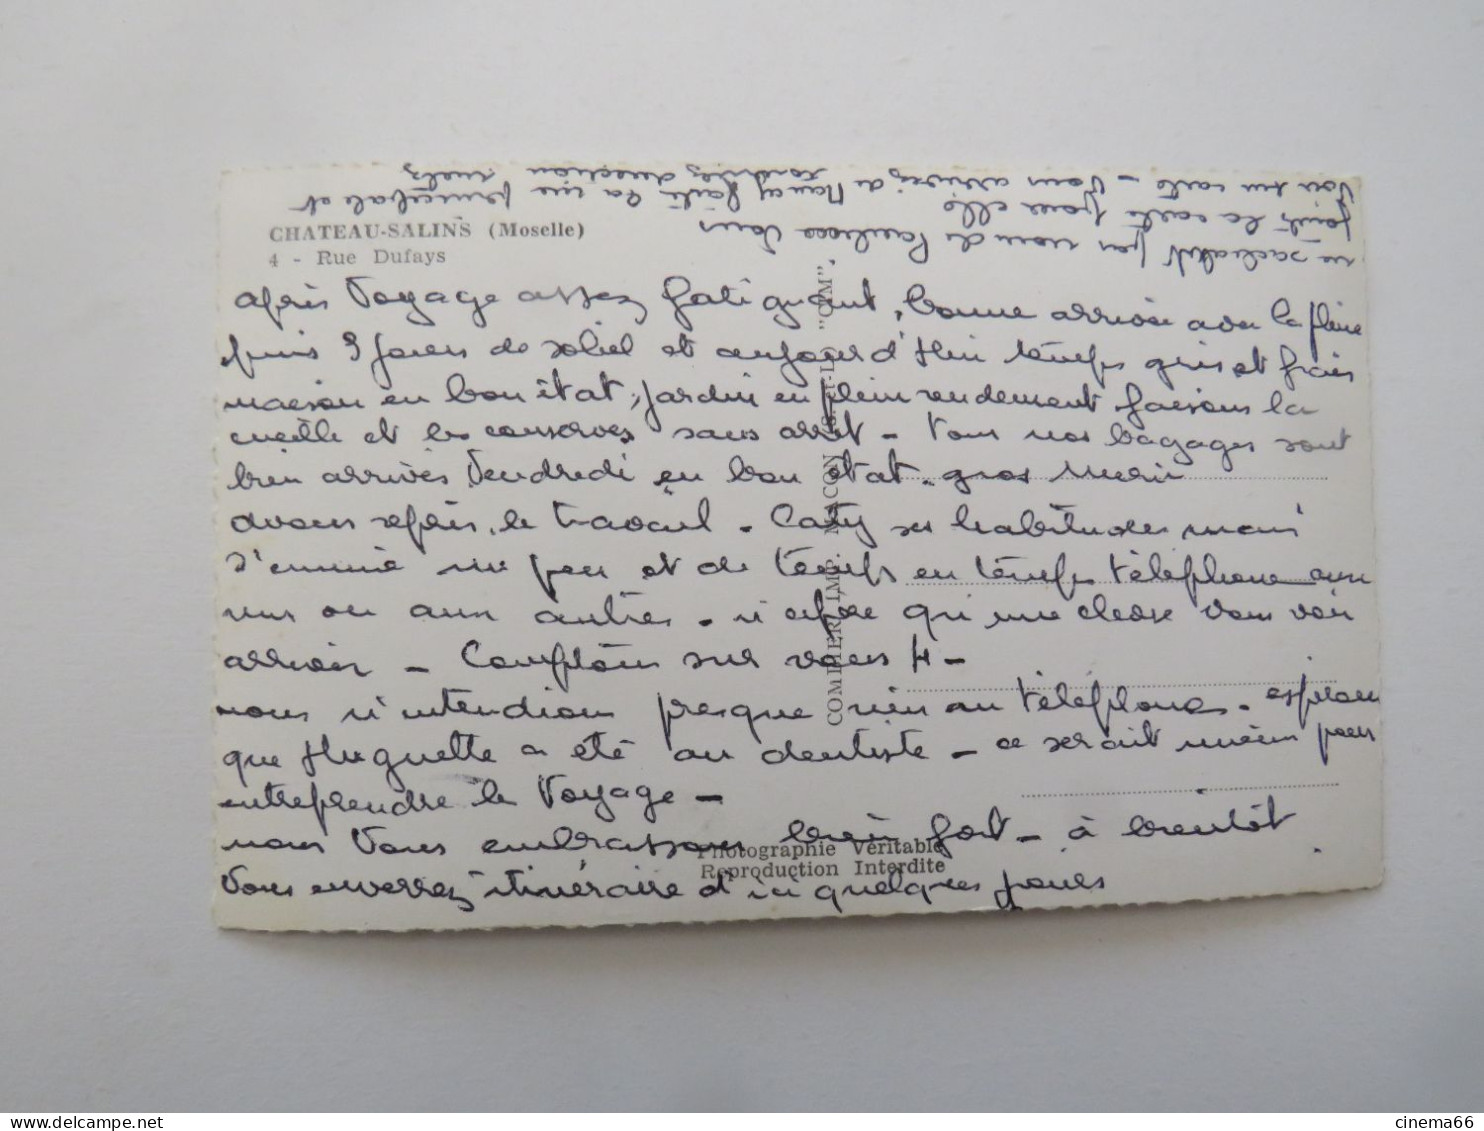 CHATEAU-SALINS (Moselle)
4 - Rue Dufays
après Voyage assez fatiguant, bonne arrivée avec la pluie
puis 3 jours de soleil et aujourd'Hui temps gris et frais
maison en bon état, jardin en plein rendement faisons la
cueille et les conserves sans arret - tous nos bagages sont
bien arrivés Vendredi en bon état. gros merci
avons repris le travail - Caty ses habitudes mais
s'ennuie un peu et de temps en temps téléphone aux
uns ou aux autres. n'espère qu'une chose vous voir
arriver - Comptons sur vous 4 -
nous n'intendions presque rien au téléphone. espérons
que Huguette a été au dentiste - ce serait mieux pour
entreprendre le Voyage -
nous Vous embrassons bien fort - à bientôt
Vous enverrez itinéraire d'ici quelques jours
ne sachant pas nom de
joint la carte pour elle
Voir sur carte - Vous arrivez de Nancy
rue principale et
direction Metz
COMBIER IMP. MACON (S.-et-L.) "CIM"
Photographie Véritable
Reproduction Interdite
cinema66